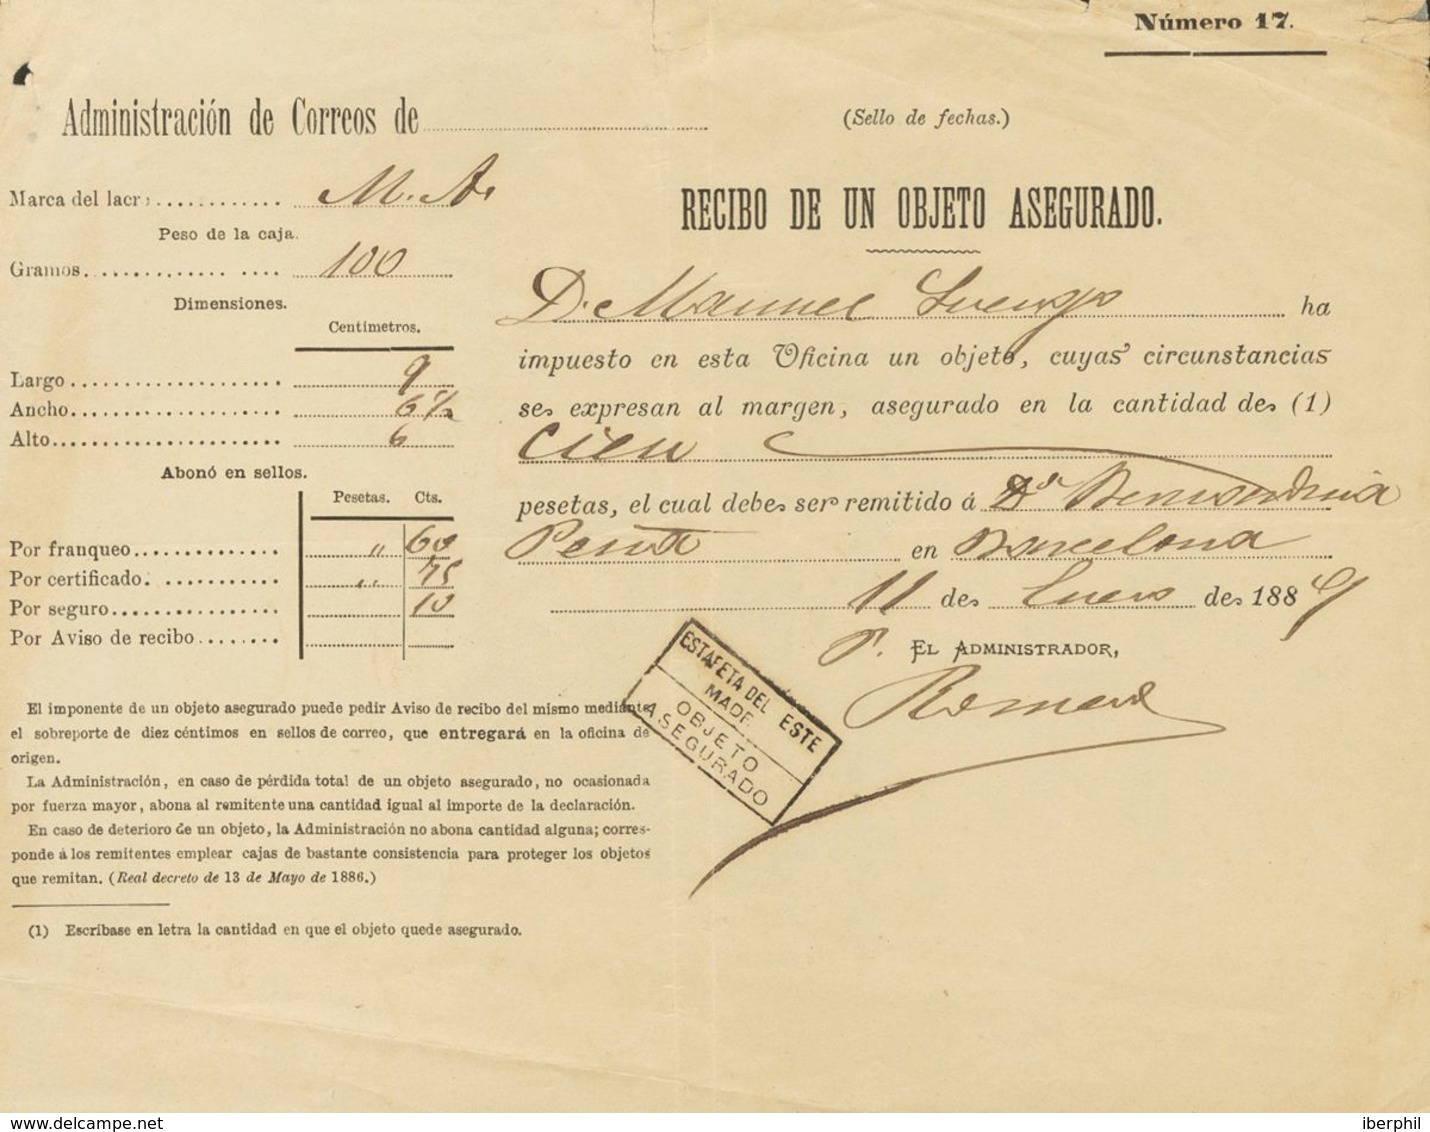 Número 17.
Administración de Correos de
(Sello de fechas.)
Marca del lacre M. A.
Peso de la caja.
Gramos 100
Dimensiones.
Centímetros.
Largo 9
Ancho 6 1/2
Alto 6
Abonó en sellos.
Pesetas. Cts.
Por franqueo „ 60
Por certificado. „ 75
Por seguro 10
Por Aviso de recibo
El imponente de un objeto asegurado puede pedir Aviso de recibo del mismo mediante
el sobreporte de diez céntimos en sellos de correo, que entregará en la oficina de
origen.
La Administración, en caso de pérdida total de un objeto asegurado, no ocasionada
por fuerza mayor, abona al remitente una cantidad igual al importe de la declaración.
En caso de deterioro de un objeto, la Administración no abona cantidad alguna; corres-
ponde á los remitentes emplear cajas de bastante consistencia para proteger los objetos
que remitan. (Real decreto de 13 de Mayo de 1886.)
(1) Escribase en letra la cantidad en que el objeto quede asegurado.
RECIBO DE UN OBJETO ASEGURADO.
D. Manuel ha
impuesto en esta Oficina un objeto, cuyas circunstancias
se expresan al margen, asegurado en la cantidad de (1)
Cien
pesetas, el cual debe ser remitido á Dª
en Barcelona
11 de Enero de 1889
P. EL ADMINISTRADOR,
ESTAFETA DEL ESTE
MADR.
OBJETO
ASEGURADO
delcampe.net
iberphil